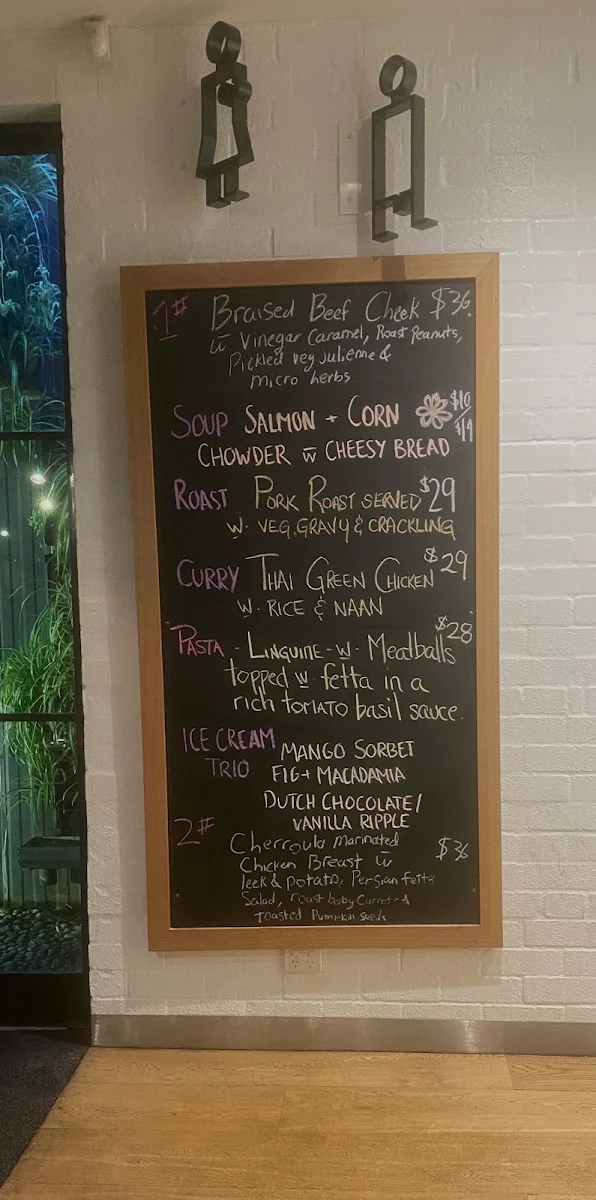 1# Braised Beef Cheek $36
w̅ Vinegar Caramel, Roast Peanuts,
Pickled veg julienne &
micro herbs
SOUP SALMON + CORN $10/$14
CHOWDER w̅ CHEESY BREAD
ROAST PORK ROAST SERVED $29
W. VEG, GRAVY & CRACKLING
CURRY THAI GREEN CHICKEN $29
W. RICE & NAAN
PASTA - LINGUINE - W. Meatballs $28
topped w fetta in a
rich tomato basil sauce.
ICE CREAM MANGO SORBET
TRIO FIG + MACADAMIA
DUTCH CHOCOLATE/
VANILLA RIPPLE
2# Cherroula Marinated $36
Chicken Breast w̅
leek & potato, Persian fetta
Salad, roast baby Carrot &
Toasted Pumpkin seeds